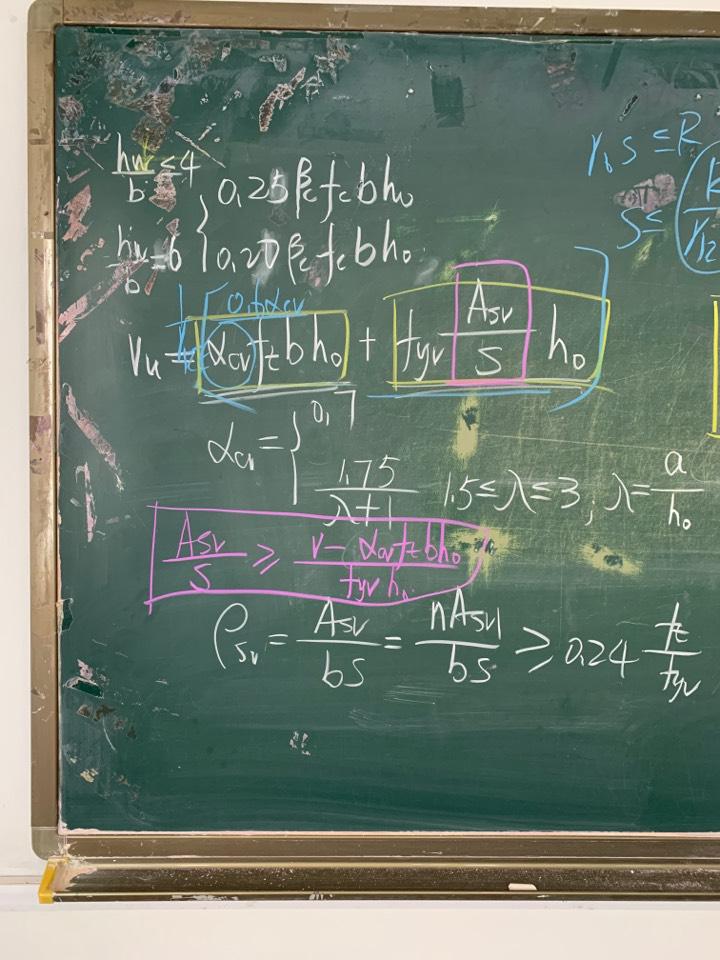 hw/b ≤4 { 0.25 βc fc b h0
hw/b =6 { 0.20 βc fc b h0
γ0 S ≤ R
S ≤
0.6αcv
Vu = αcv ft b h0 + fyv Asv/S h0
αcv = { 0.7
1.75/λ+1 1.5≤λ≤3, λ= a/h0
Asv/S ≥ V-αcv ft b h0/fyv h0
ρsv = Asv/bs = nAsv1/bs ≥ 0.24 ft/fyv